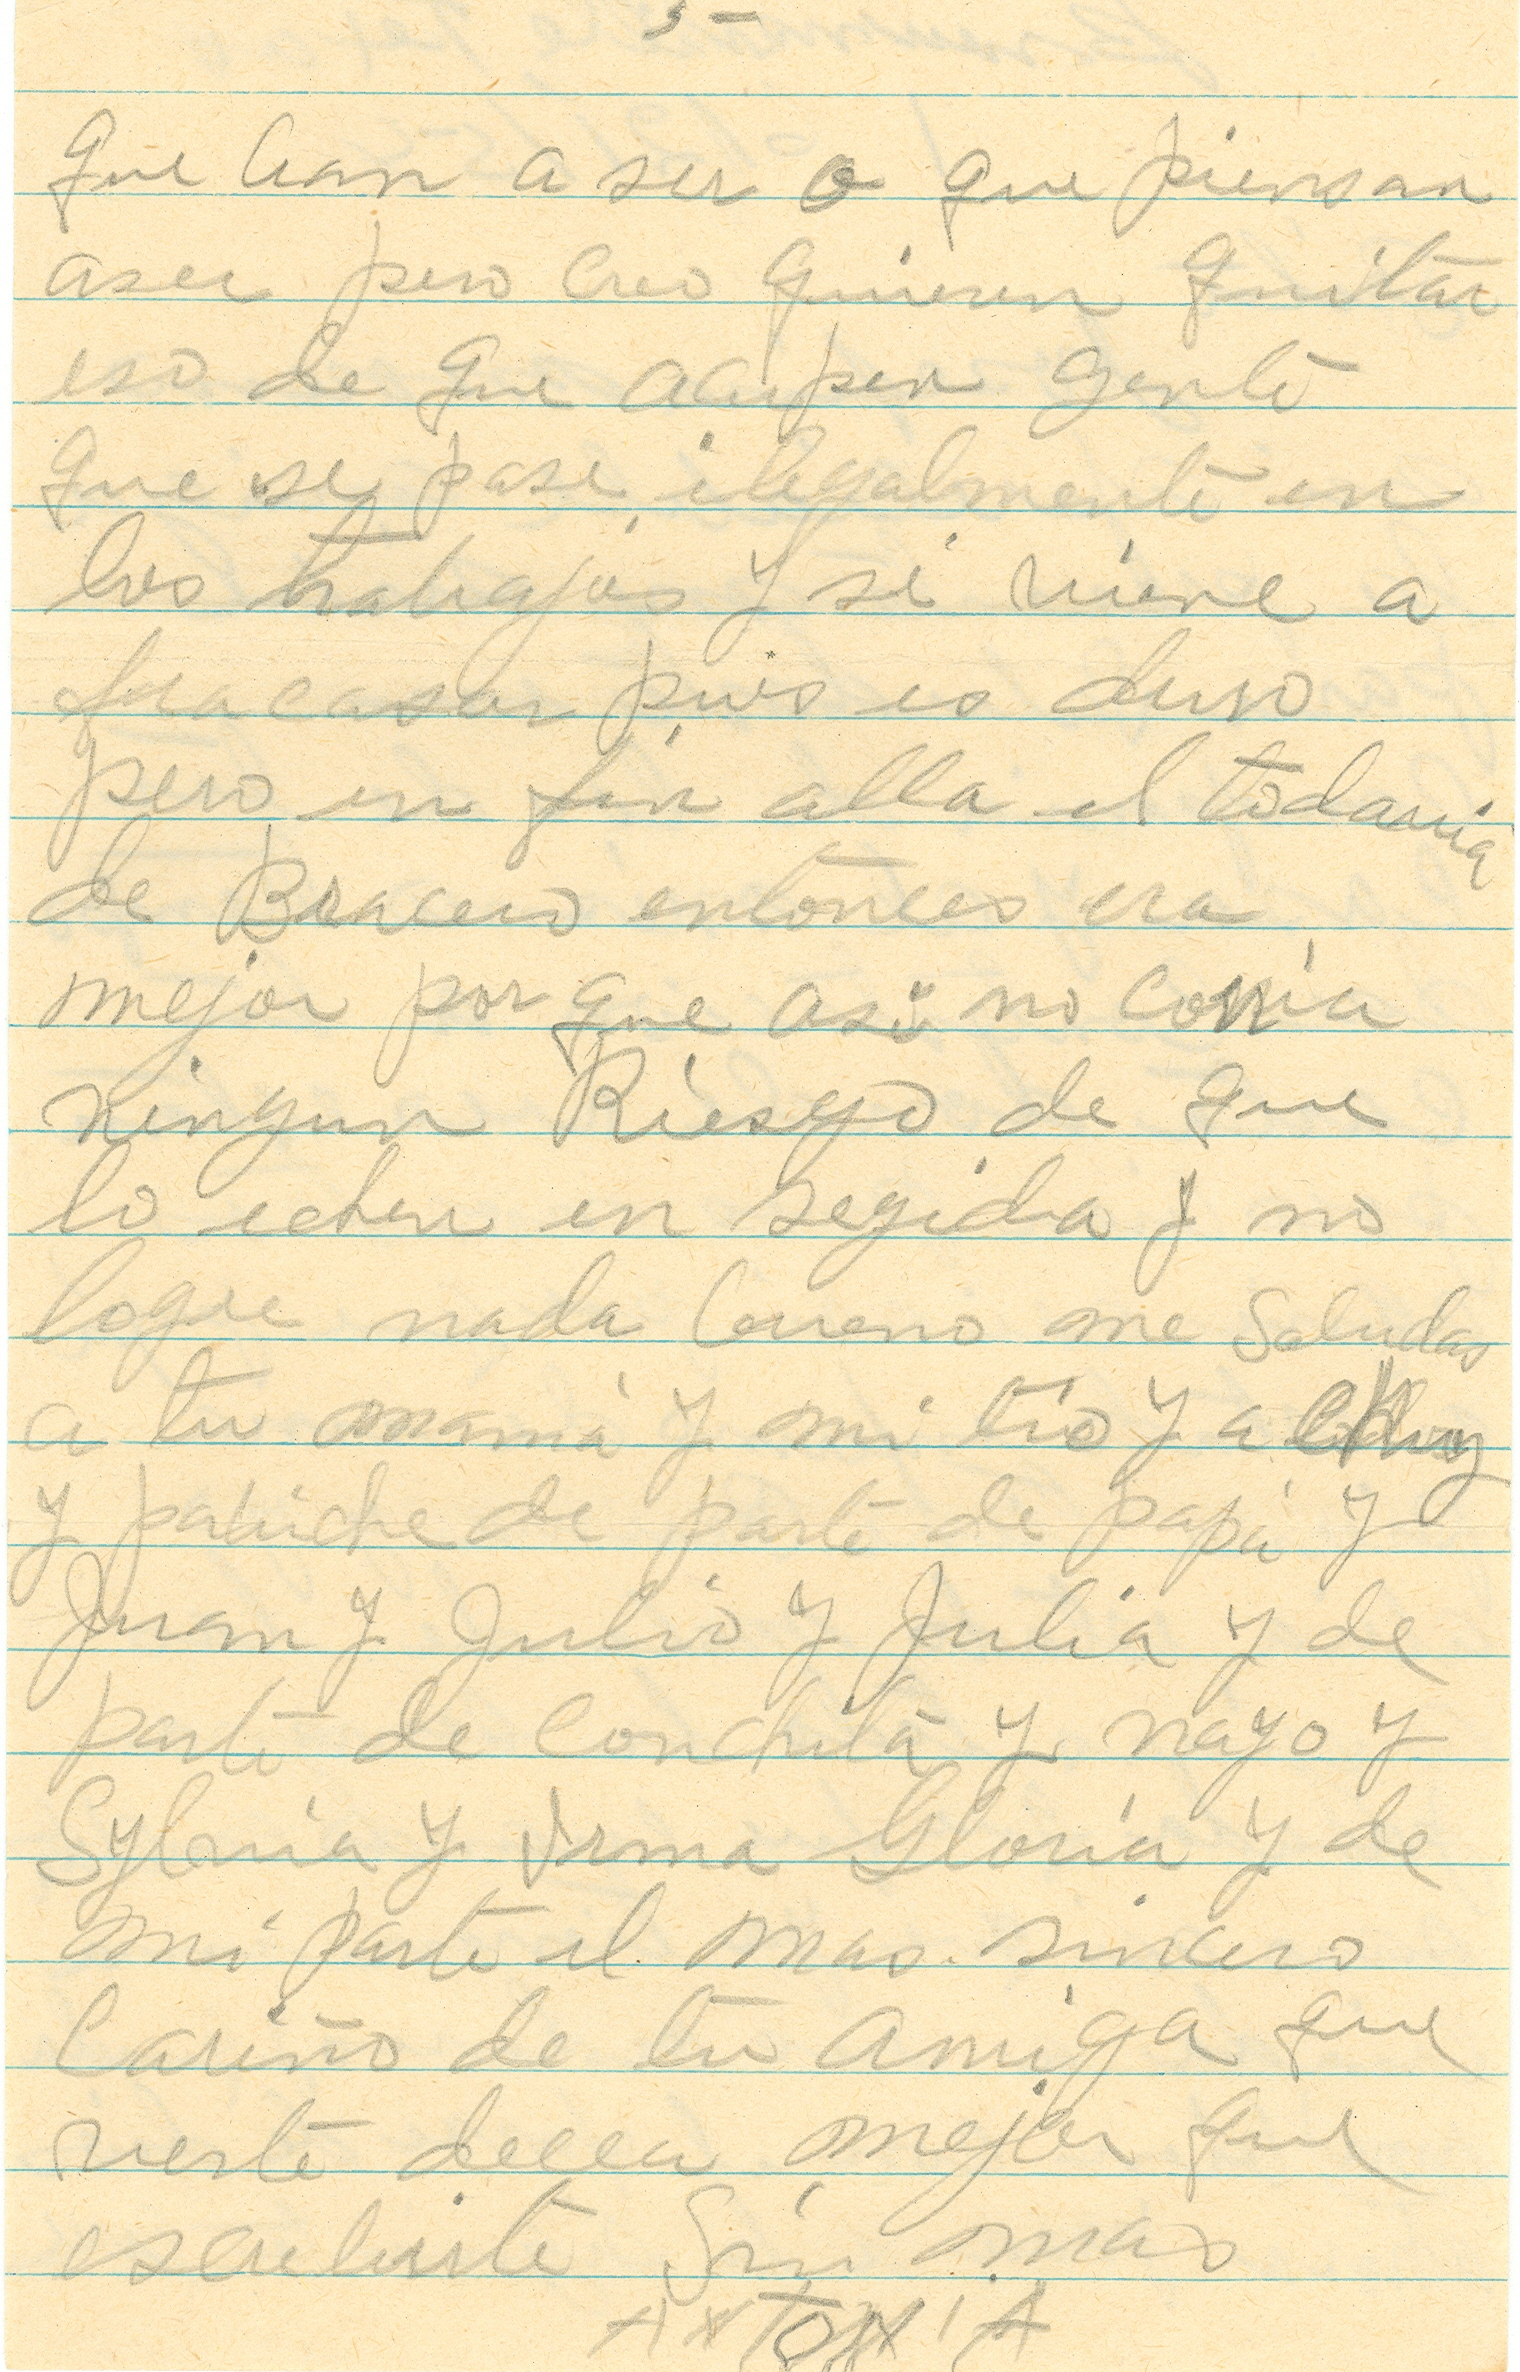 5-
que ban a ser o que piensan
aser pero creo quieren quitar
eso de que acupen gente
que se pase ilegalmente en
los trabajos y si viene a
fracasar pues es duro
pero en fin alla el todavia
de Bracero entonces era
mejor por que asi no corria
ningun Riesgo de que
lo echen en segida y no
logre nada bueno me Saludas
a tu mamá y mi tio y a Chuy
y pabiche de parte de papá y
Juan y Julio y Julia y de
parte de Conchita y nayo y
Sylvia y Irma Gloria y de
mi parte el mas sincero
Cariño de tu amiga que
verte decea mejor que
escribirte Sin mas
ANTONIA